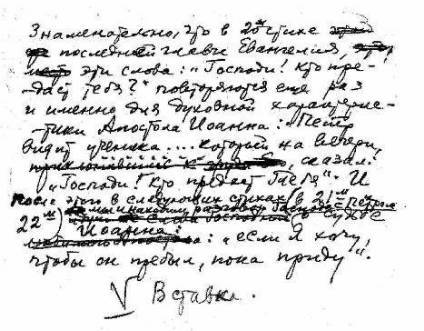 Знаменательно, что в 20м стихе
последней главы Евангелия,
эти слова: "Господи! Кто пре-
даст Тебя?" повторяются еще раз
и именно для духовной характерис-
тики Апостола Иоанна: "Петр
видит ученика.... который на вечери,
сказал:
"Господи! Кто предаст Тебя". И
После этого в следующих стихах (в 21м
22м) мы и находим разговор с Петром
о судьбе
Иоанна:
: "если Я хочу,
чтобы он пребыл, пока приду".
V Вставка.